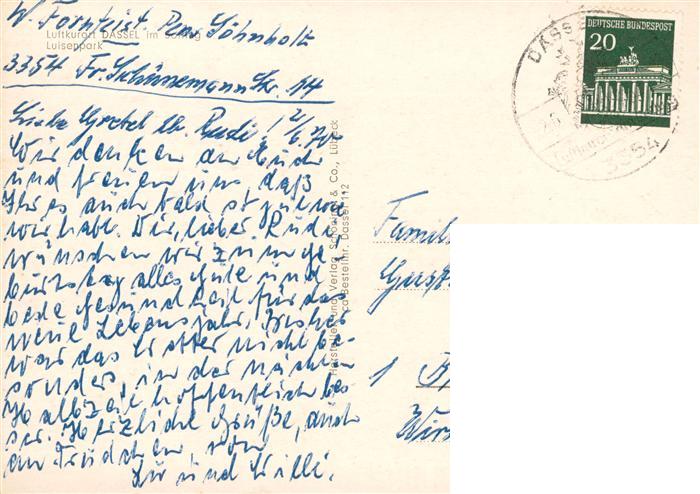 W. Forngeist Pens. Söhnholtz
Luftkurort DASSEL im Solling
Luisenpark
3354 Fr. Schünemann Str. 14
Liebe Gretel lb. Rudi! 2/6.70
Wir denken an Euch
und freuen uns, daß
Ihr es auch bald so schön
wir habt. Dir, lieber Rudi
wünschen wir zum Ge
burtstag alles Gute und
beste Gesundheit für das
neue Lebensjahr. Bisher
war das Wetter nicht be-
sonders, in der nächsten
Halbzeit hoffentlich bes
ser. Herzliche Grüße, auch
an Trudchen, von
und Willi.
Herstellung und Verlag Schöning & Co., Lübeck
Bestellnr. Dassel 112
DEUTSCHE BUNDESPOST
20
DASSEL
3354
Famil
1 B